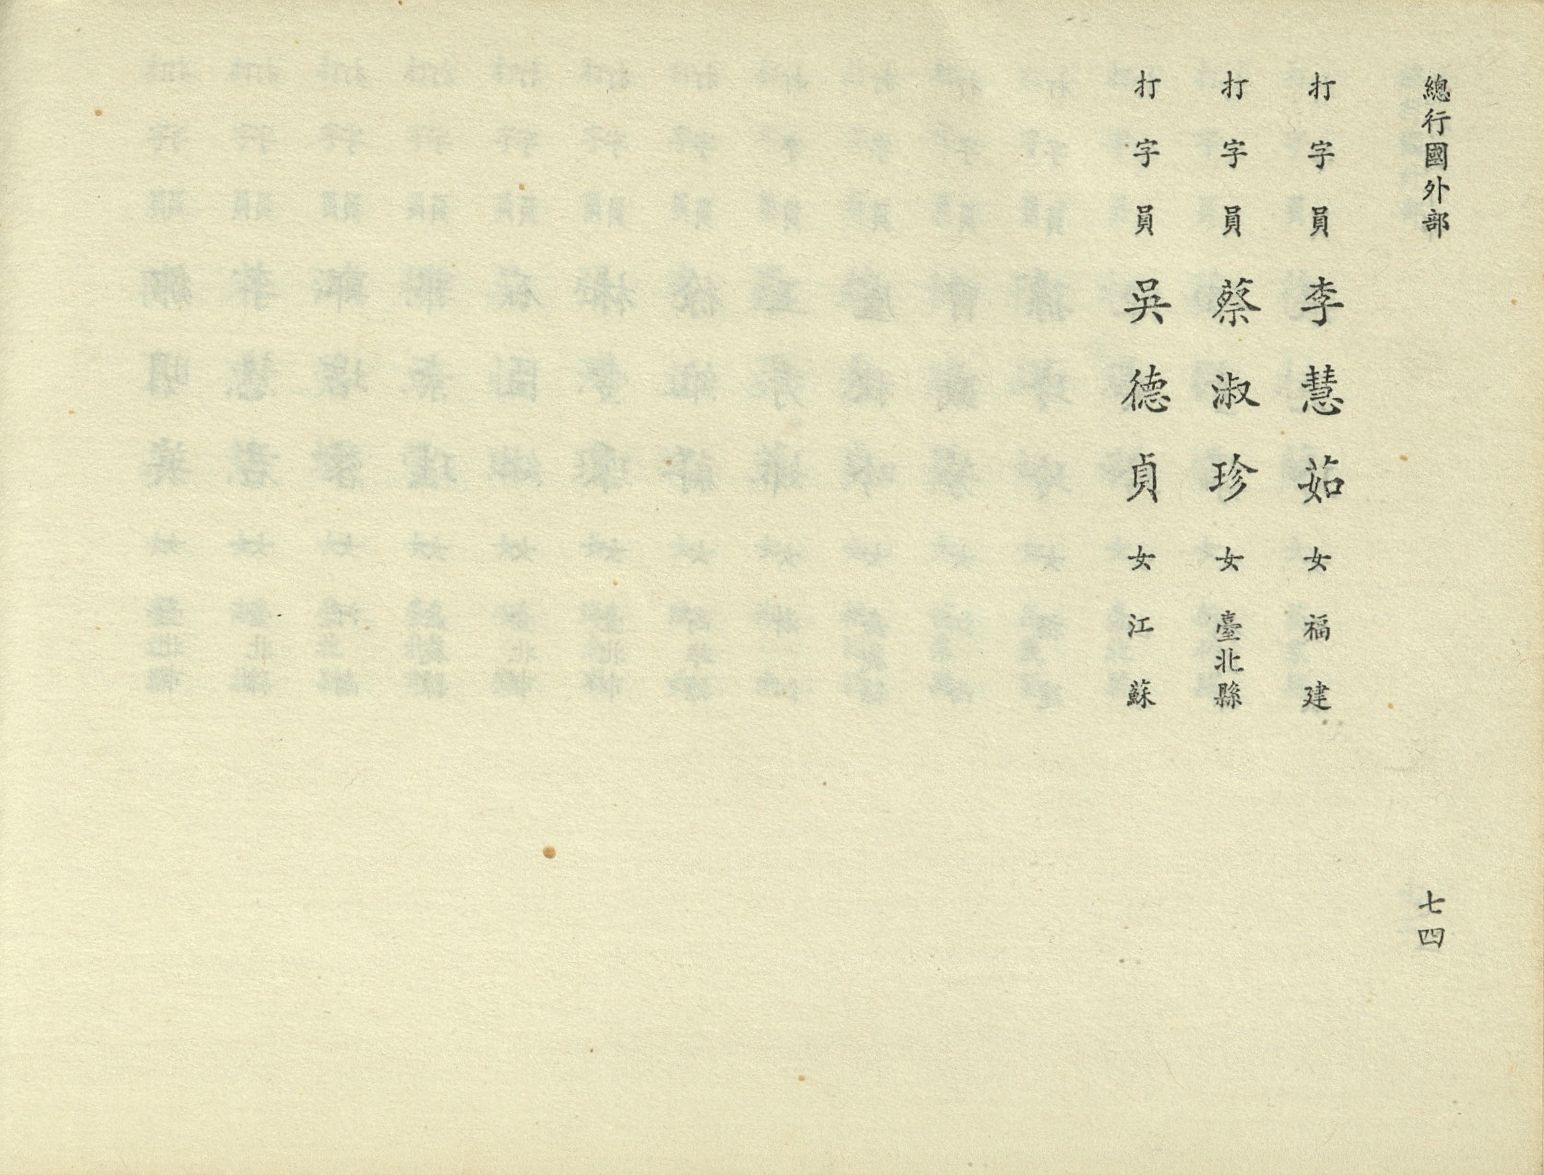 總行國外部
七四
打字員李慧茹女福建
打字員蔡淑珍女臺北縣
打字員吳德貞女江蘇